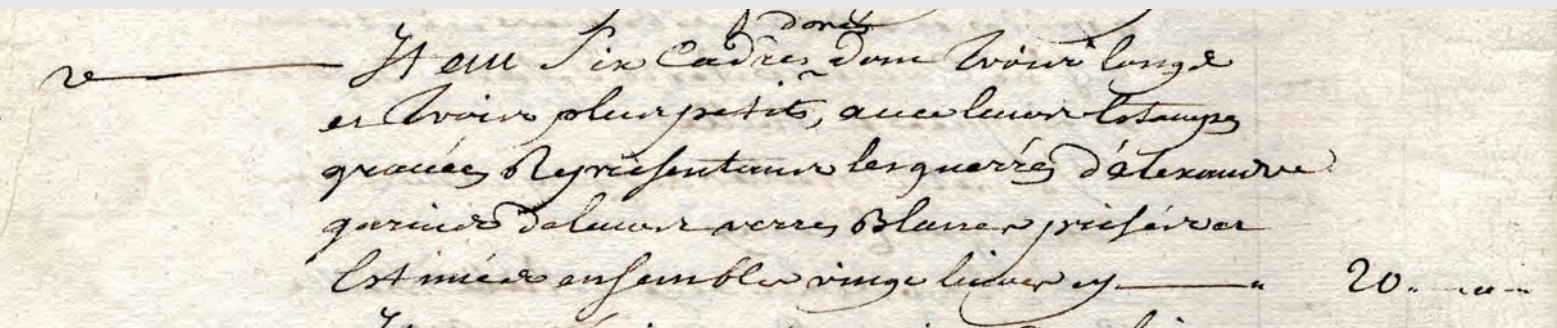 dorés
Item Six Cadres dont trois longs
et trois plus petits, avec leurs Estampes
gravées Représentant les guerres d'alexandre
garnies de leurs verres Blancs prisées et
Estimées ensembles vingt livres cy 20